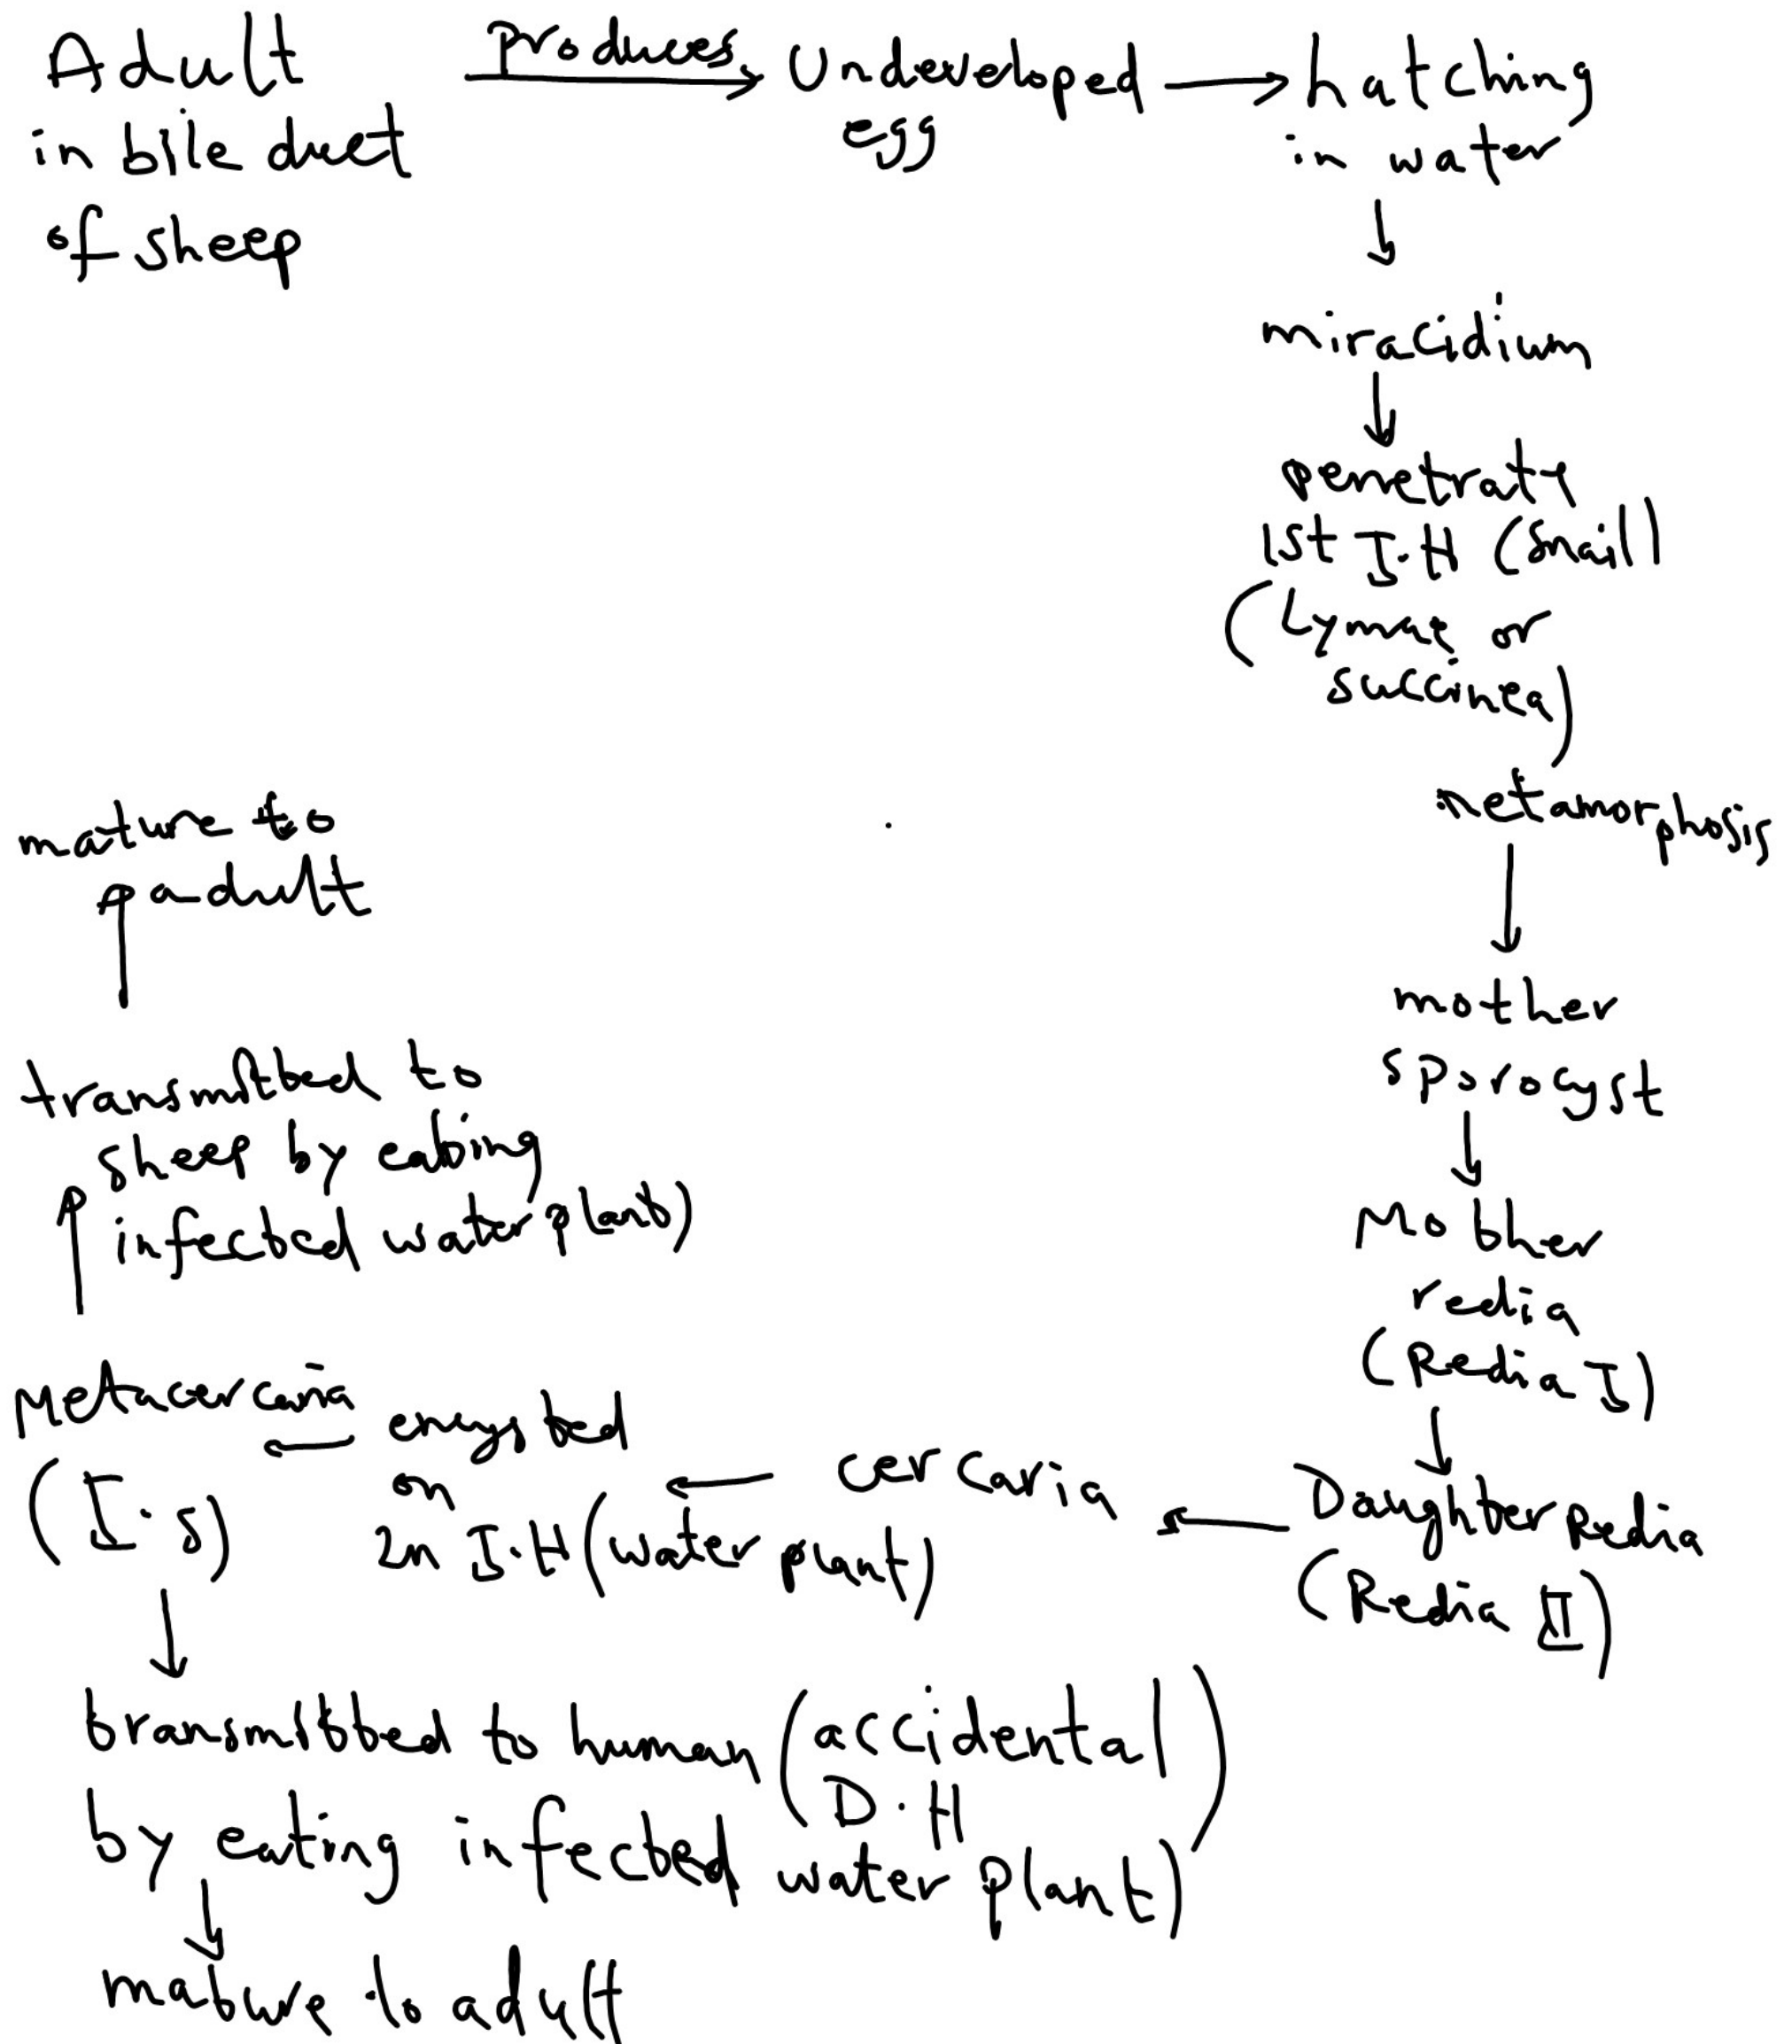 Adult
in bile duct
of sheep
Produces
Undeveloped
egg
hatching
in water
miracidium
penetrate
1st I.H (Snail)
(Lymnae or
succinea)
metamorphosis
mother
sporocyst
Mother
redia
(Redia I)
Daughter Redia
(Redia II)
cercaria
encysted
on
2n I.H (water plant)
Metacercaria
(I.S)
transmitted to
sheep by eating
infected water plant)
mature to
adult
transmitted to human (accidental
D.H)
by eating infected water plant)
mature to adult